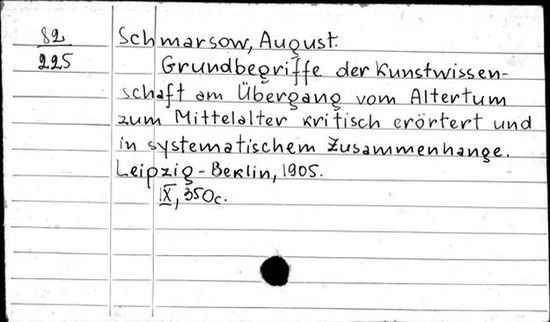 82
225
Schmarsow, August.
Grundbegriffe der Kunstwissen-
schaft am Übergang vom Altertum
zum Mittelalter kritisch erörtert und
in systematischem Zusammenhange.
Leipzig - Berlin, 1905.
IX, 350c.